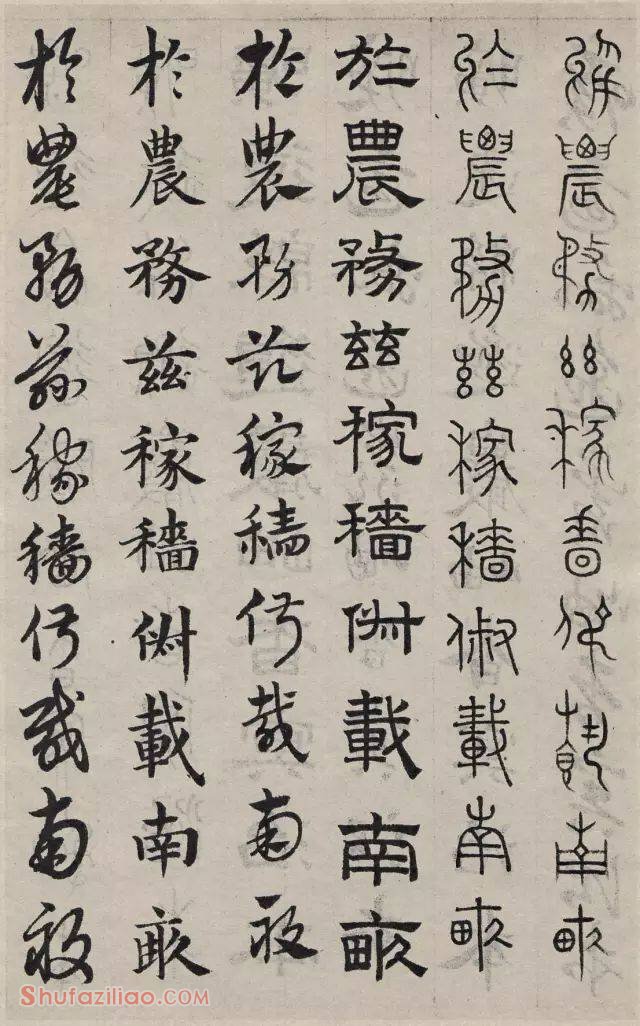 於農務茲稼穡俶載南畝
於農務茲稼穡俶載南畝
於農務茲稼穡俶載南畝
於農務茲稼穡俶載南畝
於農務茲稼穡俶載南畝
於農務茲稼穡俶載南畝
Shufaziliao.COM